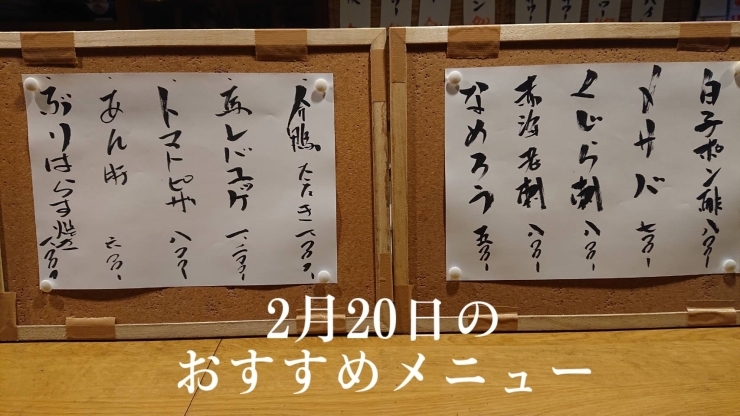 白子ポン酢 八〇〇ー
〆サバ 七〇〇ー
くじら刺 八〇〇ー
赤海老刺 八〇〇ー
なめろう 五〇〇ー
合鴨たたき 一、〇〇〇ー
馬レバユッケ 一、二〇〇ー
トマトピザ 八〇〇ー
あん肝 六〇〇ー
ぶりはらす焼
2月20日の
おすすめメニュー